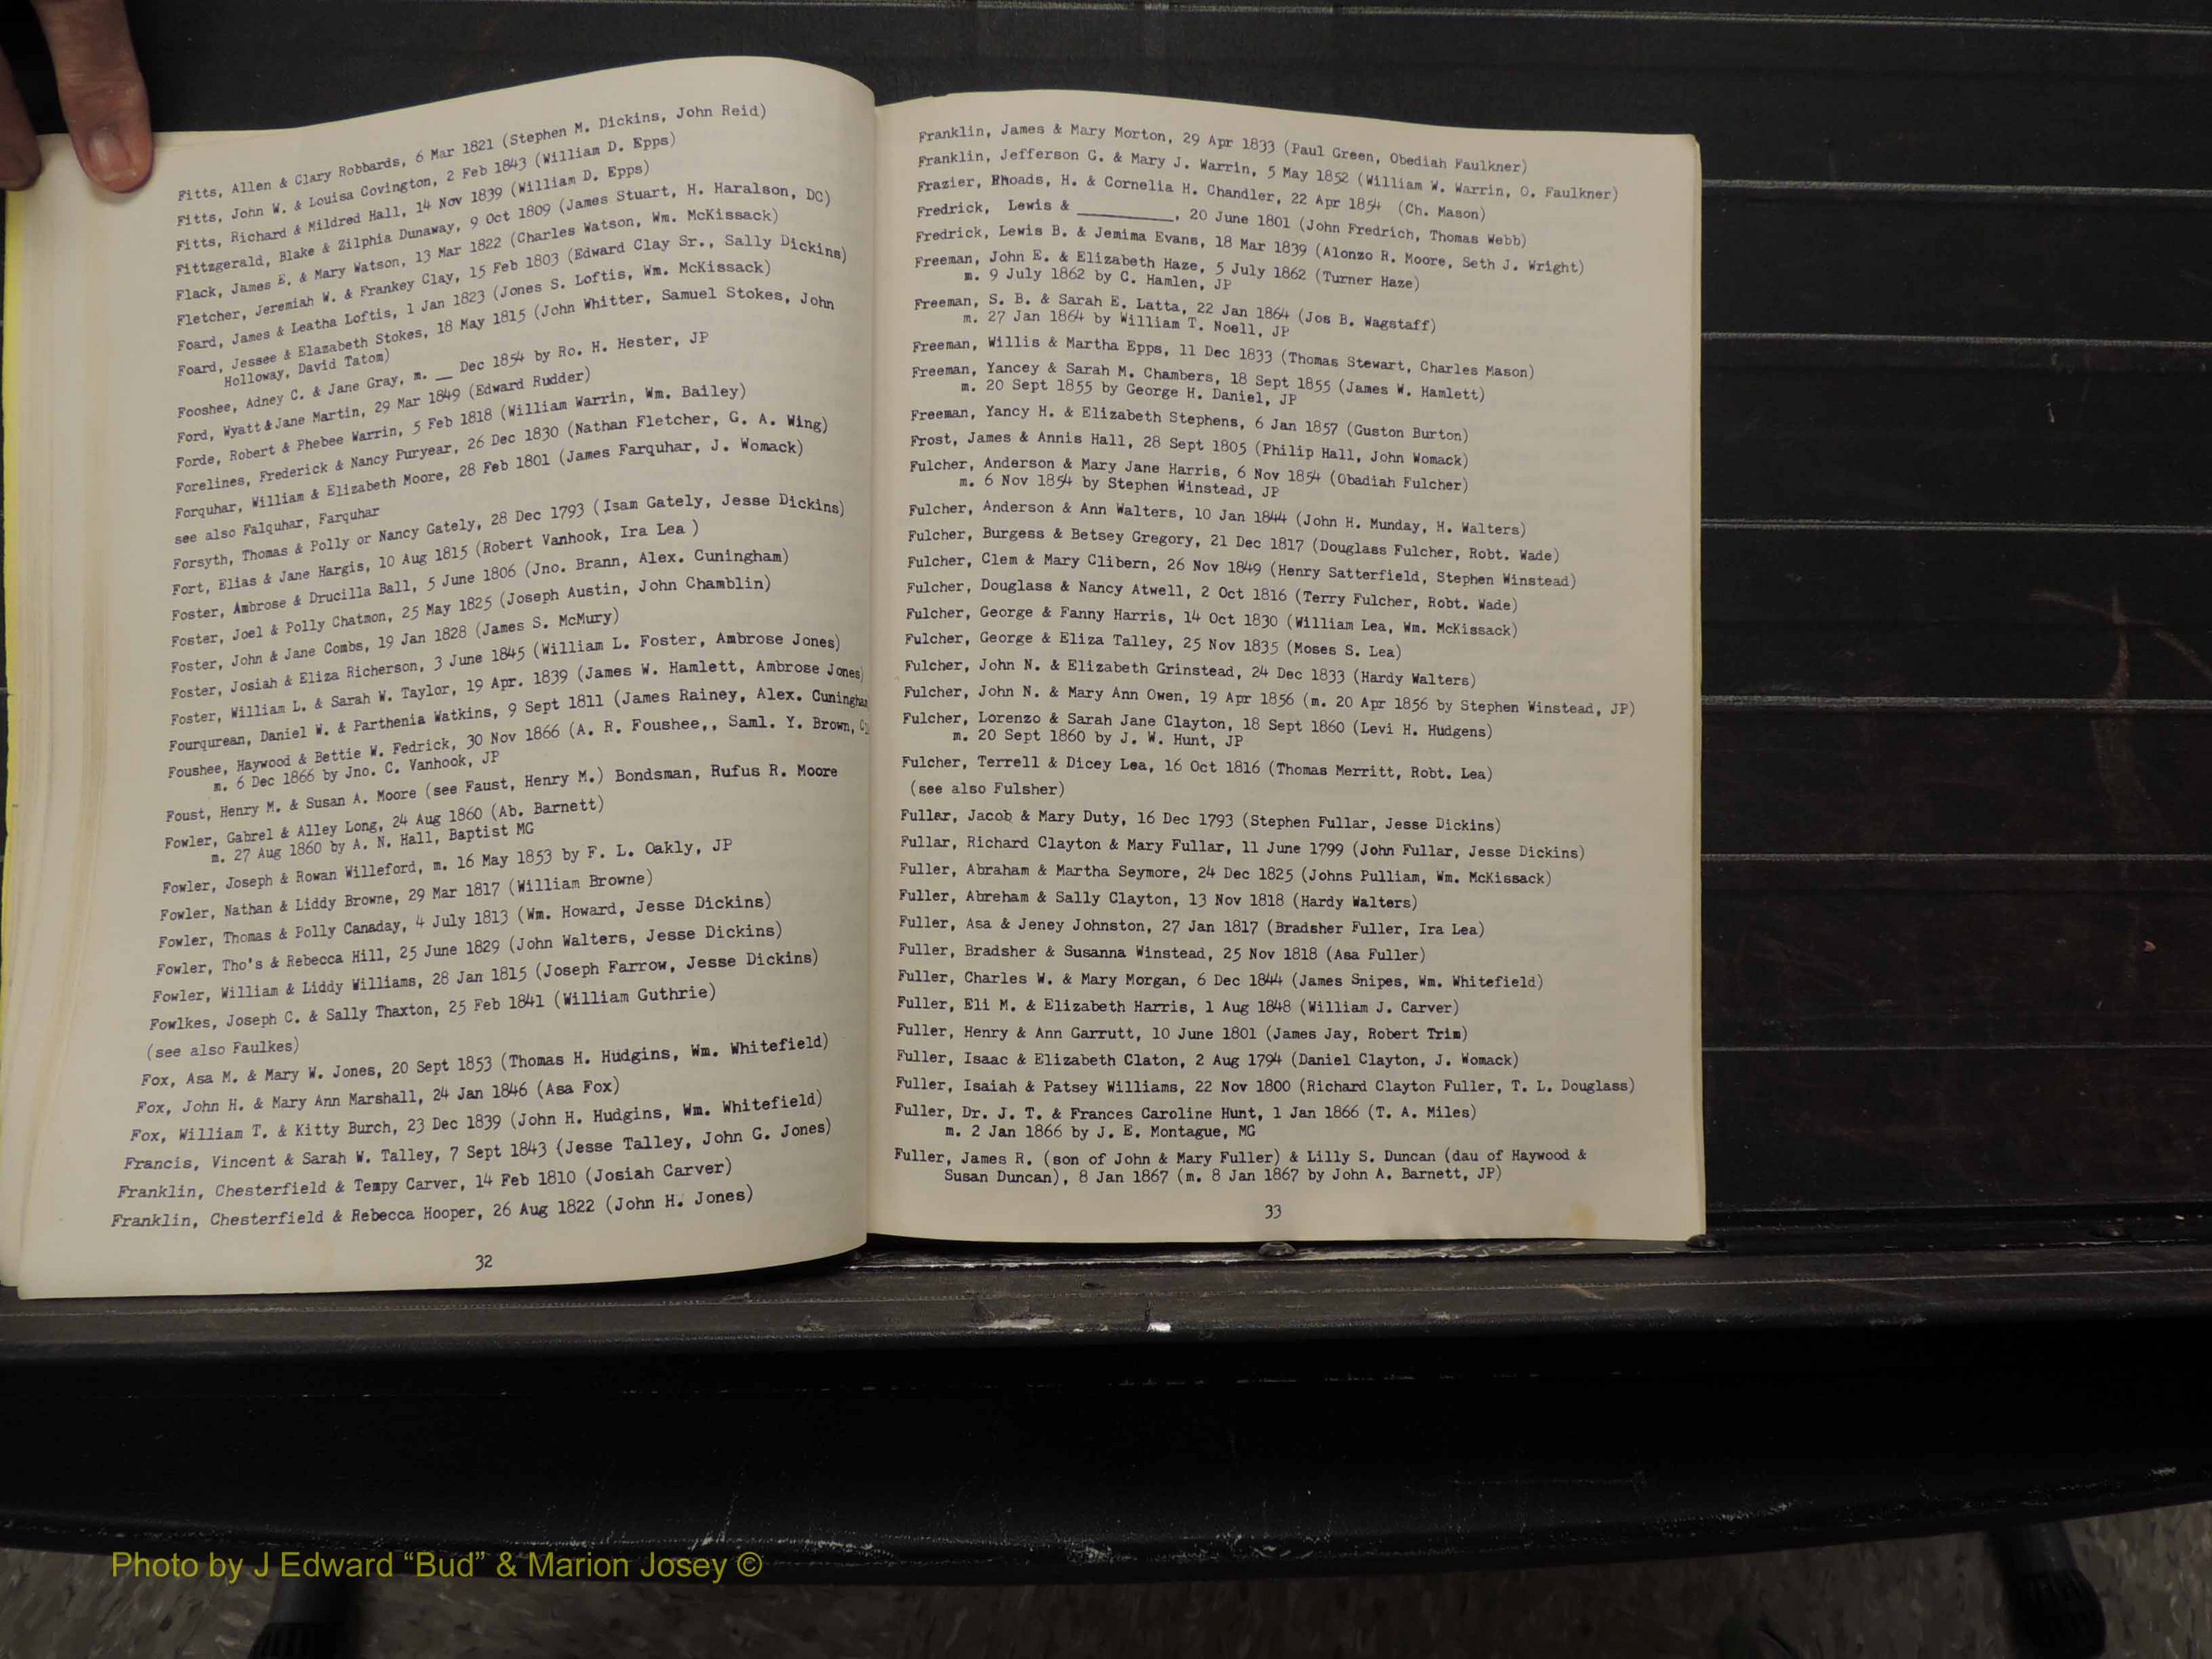 Fitts, Allen & Clary Robbards, 6 Mar 1821 (Stephen M. Dickins, John Reid)
Fitts, John W. & Louisa Covington, 2 Feb 1843 (William D. Epps)
Fitts, Richard & Mildred Hall, 14 Nov 1839 (William D. Epps)
Fittzgerald, Blake & Zilphia Dunaway, 9 Oct 1809 (James Stuart, H. Haralson, DC)
Flack, James E. & Mary Watson, 13 Mar 1822 (Charles Watson, Wm. McKissack)
Fletcher, Jeremiah W. & Frankey Clay, 15 Feb 1803 (Edward Clay Sr., Sally Dickins)
Foard, James & Leatha Loftis, 1 Jan 1823 (Jones S. Loftis, Wm. McKissack)
Foard, Jessee & Elazabeth Stokes, 18 May 1815 (John Whitter, Samuel Stokes, John
Holloway, David Tatom)
Fooshee, Adney C. & Jane Gray, m. __ Dec 1854 by Ro. H. Hester, JP
Ford, Wyatt & Jane Martin, 29 Mar 1849 (Edward Rudder)
Forde, Robert & Phebee Warrin, 5 Feb 1818 (William Warrin, Wm. Bailey)
Forelines, Frederick & Nancy Puryear, 26 Dec 1830 (Nathan Fletcher, G. A. Wing)
Forquhar, William & Elizabeth Moore, 28 Feb 1801 (James Farquhar, J. Womack)
see also Falquhar, Farquhar
Forsyth, Thomas & Polly or Nancy Gately, 28 Dec 1793 (Isam Gately, Jesse Dickins)
Fort, Elias & Jane Hargis, 10 Aug 1815 (Robert Vanhook, Ira Lea )
Foster, Ambrose & Drucilla Ball, 5 June 1806 (Jno. Brann, Alex. Cuningham)
Foster, Joel & Polly Chatmon, 25 May 1825 (Joseph Austin, John Chamblin)
Foster, John & Jane Combs, 19 Jan 1828 (James S. McMury)
Foster, Josiah & Eliza Richerson, 3 June 1845 (William L. Foster, Ambrose Jones)
Foster, William L. & Sarah W. Taylor, 19 Apr. 1839 (James W. Hamlett, Ambrose Jones)
Fourqurean, Daniel W. & Parthenia Watkins, 9 Sept 1811 (James Rainey, Alex. Cuningham
Foushee, Haywood & Bettie W. Fedrick, 30 Nov 1866 (A. R. Foushee,, Saml. Y. Brown,
m. 6 Dec 1866 by Jno. C. Vanhook, JP
Foust, Henry M. & Susan A. Moore (see Faust, Henry M.) Bondsman, Rufus R. Moore
Fowler, Gabrel & Alley Long, 24 Aug 1860 (Ab. Barnett)
m. 27 Aug 1860 by A. N. Hall, Baptist MG
Fowler, Joseph & Rowan Willeford, m. 16 May 1853 by F. L. Oakly, JP
Fowler, Nathan & Liddy Browne, 29 Mar 1817 (William Browne)
Fowler, Thomas & Polly Canaday, 4 July 1813 (Wm. Howard, Jesse Dickins)
Fowler, Tho's & Rebecca Hill, 25 June 1829 (John Walters, Jesse Dickins)
Fowler, William & Liddy Williams, 28 Jan 1815 (Joseph Farrow, Jesse Dickins)
Fowlkes, Joseph C. & Sally Thaxton, 25 Feb 1841 (William Guthrie)
(see also Faulkes)
Fox, Asa M. & Mary W. Jones, 20 Sept 1853 (Thomas H. Hudgins, Wm. Whitefield)
Fox, John H. & Mary Ann Marshall, 24 Jan 1846 (Asa Fox)
Fox, William T. & Kitty Burch, 23 Dec 1839 (John H. Hudgins, Wm. Whitefield)
Francis, Vincent & Sarah W. Talley, 7 Sept 1843 (Jesse Talley, John G. Jones)
Franklin, Chesterfield & Tempy Carver, 14 Feb 1810 (Josiah Carver)
Franklin, Chesterfield & Rebecca Hooper, 26 Aug 1822 (John H. Jones)
32
Franklin, James & Mary Morton, 29 Apr 1833 (Paul Green, Obediah Faulkner)
Franklin, Jefferson G. & Mary J. Warrin, 5 May 1852 (William W. Warrin, O. Faulkner)
Frazier, Rhoads, H. & Cornelia H. Chandler, 22 Apr 1854 (Ch. Mason)
Fredrick, Lewis & __________, 20 June 1801 (John Fredrich, Thomas Webb)
Fredrick, Lewis B. & Jemima Evans, 18 Mar 1839 (Alonzo R. Moore, Seth J. Wright)
Freeman, John E. & Elizabeth Haze, 5 July 1862 (Turner Haze)
m. 9 July 1862 by C. Hamlen, JP
Freeman, S. B. & Sarah E. Latta, 22 Jan 1864 (Jos B. Wagstaff)
m. 27 Jan 1864 by William T. Noell, JP
Freeman, Willis & Martha Epps, 11 Dec 1833 (Thomas Stewart, Charles Mason)
Freeman, Yancey & Sarah M. Chambers, 18 Sept 1855 (James W. Hamlett)
m. 20 Sept 1855 by George H. Daniel, JP
Freeman, Yancy H. & Elizabeth Stephens, 6 Jan 1857 (Guston Burton)
Frost, James & Annis Hall, 28 Sept 1805 (Philip Hall, John Womack)
Fulcher, Anderson & Mary Jane Harris, 6 Nov 1854 (Obadiah Fulcher)
m. 6 Nov 1854 by Stephen Winstead, JP
Fulcher, Anderson & Ann Walters, 10 Jan 1844 (John H. Munday, H. Walters)
Fulcher, Burgess & Betsey Gregory, 21 Dec 1817 (Douglass Fulcher, Robt. Wade)
Fulcher, Clem & Mary Clibern, 26 Nov 1849 (Henry Satterfield, Stephen Winstead)
Fulcher, Douglass & Nancy Atwell, 2 Oct 1816 (Terry Fulcher, Robt. Wade)
Fulcher, George & Fanny Harris, 14 Oct 1830 (William Lea, Wm. McKissack)
Fulcher, George & Eliza Talley, 25 Nov 1835 (Moses S. Lea)
Fulcher, John N. & Elizabeth Grinstead, 24 Dec 1833 (Hardy Walters)
Fulcher, John N. & Mary Ann Owen, 19 Apr 1856 (m. 20 Apr 1856 by Stephen Winstead, JP)
Fulcher, Lorenzo & Sarah Jane Clayton, 18 Sept 1860 (Levi H. Hudgens)
m. 20 Sept 1860 by J. W. Hunt, JP
Fulcher, Terrell & Dicey Lea, 16 Oct 1816 (Thomas Merritt, Robt. Lea)
(see also Fulsher)
Fullar, Jacob & Mary Duty, 16 Dec 1793 (Stephen Fullar, Jesse Dickins)
Fullar, Richard Clayton & Mary Fullar, 11 June 1799 (John Fullar, Jesse Dickins)
Fuller, Abraham & Martha Seymore, 24 Dec 1825 (Johns Pulliam, Wm. McKissack)
Fuller, Abreham & Sally Clayton, 13 Nov 1818 (Hardy Walters)
Fuller, Asa & Jeney Johnston, 27 Jan 1817 (Bradsher Fuller, Ira Lea)
Fuller, Bradsher & Susanna Winstead, 25 Nov 1818 (Asa Fuller)
Fuller, Charles W. & Mary Morgan, 6 Dec 1844 (James Snipes, Wm. Whitefield)
Fuller, Eli M. & Elizabeth Harris, 1 Aug 1848 (William J. Carver)
Fuller, Henry & Ann Garrutt, 10 June 1801 (James Jay, Robert Trim)
Fuller, Isaac & Elizabeth Claton, 2 Aug 1794 (Daniel Clayton, J. Womack)
Fuller, Isaiah & Patsey Williams, 22 Nov 1800 (Richard Clayton Fuller, T. L. Douglass)
Fuller, Dr. J. T. & Frances Caroline Hunt, 1 Jan 1866 (T. A. Miles)
m. 2 Jan 1866 by J. E. Montague, MG
Fuller, James R. (son of John & Mary Fuller) & Lilly S. Duncan (dau of Haywood &
Susan Duncan), 8 Jan 1867 (m. 8 Jan 1867 by John A. Barnett, JP)
33
Photo by J Edward “Bud” & Marion Josey ©